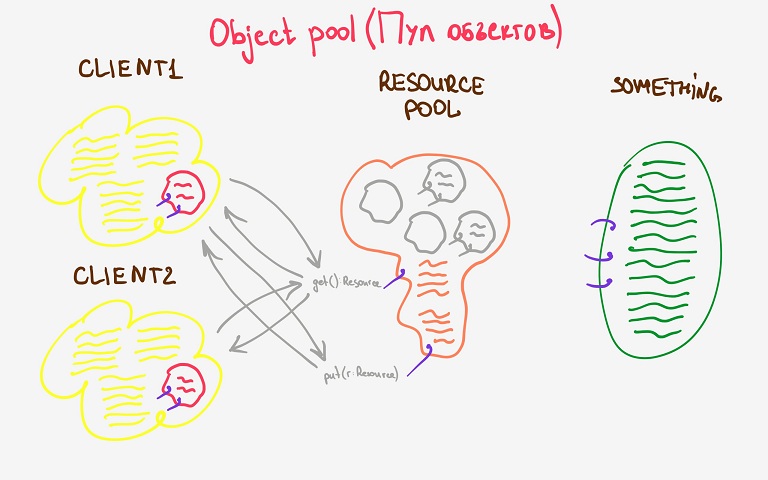 Object pool (Пул объектов)
CLIENT1
RESOURCE
POOL
SOMETHING
CLIENT2
get():Resource
put(r:Resource)